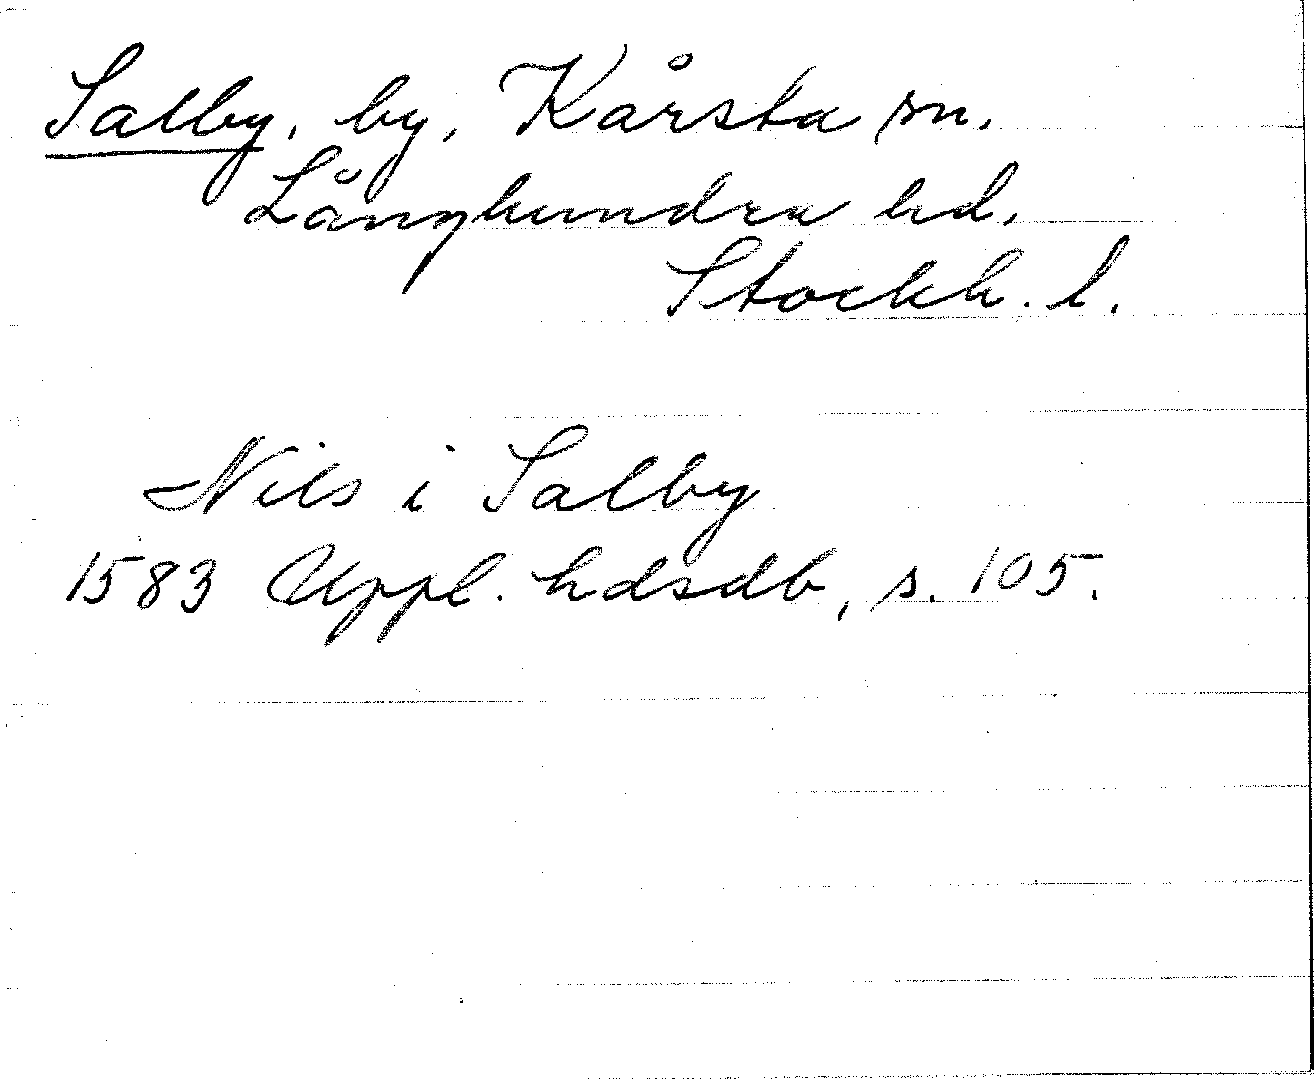 Salby, by, Kårsta sn.
Långhundra hd.
Stockh. l.
Nils i Salby
1583 Uppl. hdsdb, s. 105.